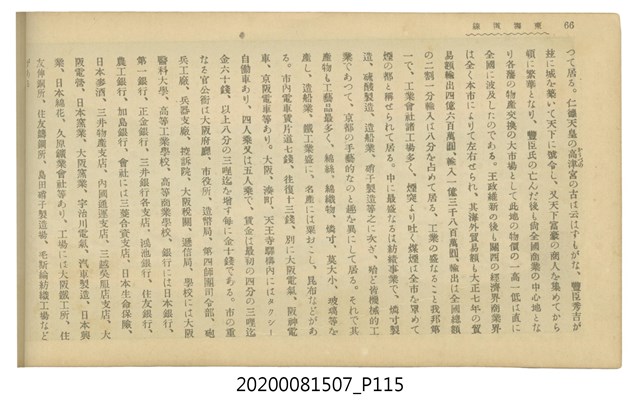 66
つて居る。仁德天皇の高津宮の古は云は下もがな、豐臣秀吉が
玆に城を築いて天下に號令し、又天下富豪の商人を集めてから
頓に繁華となり、豐臣氏の亡んだ後も尙全國商業の中心地とな
り各藩の物產交換の大市場として此地の物價の一高一低は直に
全國に波及したのである。王政維新の後も關西の經濟界商業界
は全く本市によりて左右せられ、其海外貿易額も大正七年の貿
易額輸出四億六百萬圓、輸入一億三千八百萬圓、輸出は全國總額
の二割一分輸入は八分を占めて居る、工業の盛なること我邦第
一で、工業會社諸工場多く、煙突より吐く煤煙は全市を罩めて
煙の都と稱せられて居る。中に最盛なるは紡織事業で、燐寸製
造、硫酸製造、造船業、硝子製造等之に次ぎ、殆ど皆機械的工
業であつて、京都の手藝的なのと趣を異にして居る。それで其
產物も工藝品最多く、綿絲、綿織物、燐寸、莫大小、玻璃等を
產し、造船業、鐵工業盛に、名產には粟おこし、昆布などがあ
る。市內電車賃片道七錢、往復十三錢、別に大阪電氣、阪神電
車、京阪電車等あり。大阪、湊町、天王寺驛構內にはタクシー
自働車あり、四人乘又は五人乘で、賃金は最初の四分の三哩迄
金六十錢、以上八分の三哩迄を增す每に金十錢である。市の重
なる官公衙は大阪府廳、市役所、造幣局、第四師團司令部、砲
兵工廠、兵器支廠、控訴院、大阪稅關、遞信局、學校には大阪
醫科大學、高等工業學校、高等商業學校、銀行には日本銀行、
第一銀行、正金銀行、三井銀行各支店、鴻池銀行、住友銀行、
農工銀行、加島銀行、會社には三菱合資支店、日本生命保險、
日本麥酒、三井物產支店、內國通運支店、三越吳服店支店、大
阪電燈、日本窯業、大阪窯業、宇治川電氣、汽車製造、日本興
業、日本綿花、久原鑛業會社等あり、工場には大阪鐵工所、住
友伸銅所、住友鑄鋼所、島田硝子製造場、毛斯綸紡織工場など
20200081507_P115